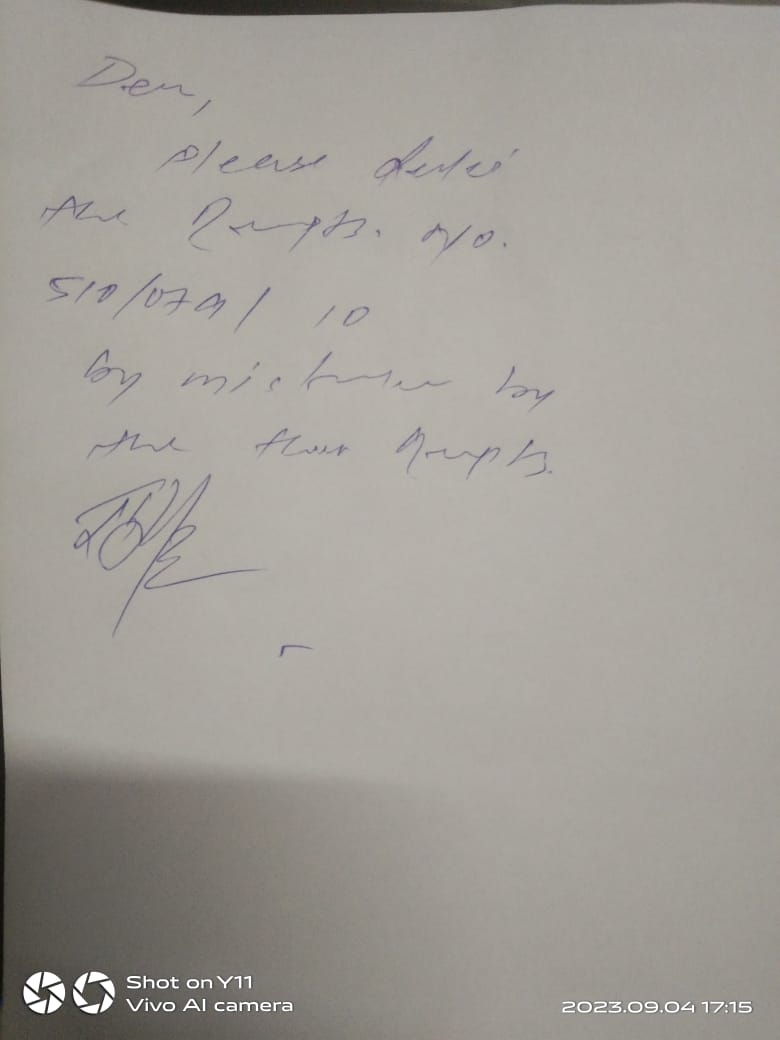 Dear,
please delete
the Receipts. No.
510/079/ 10
by mistake by
the Receipts.
Shot on Y11
Vivo AI camera
2023.09.04 17:15